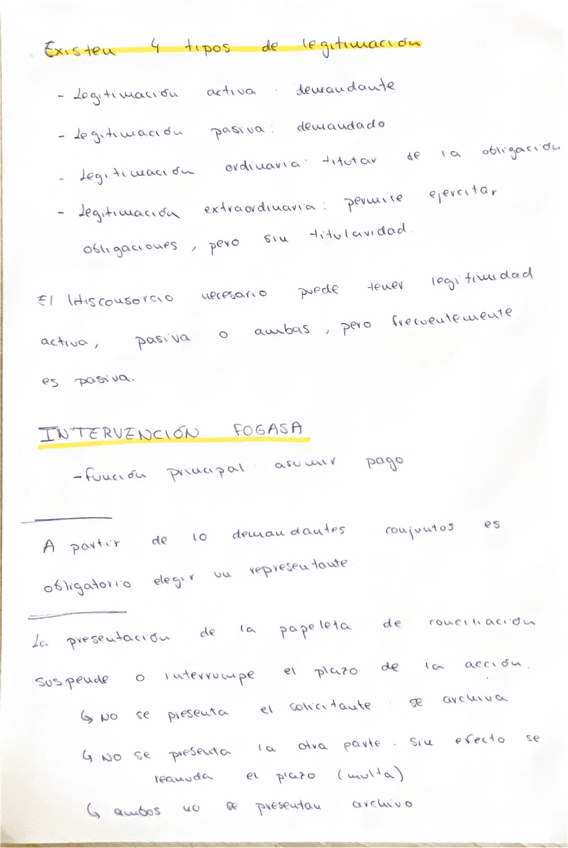 Existen 4 tipos de legitimación
- Legitimación activa: demandante
- Legitimación pasiva: demandado
- Legitimación ordinaria: titular de la obligación
- Legitimación extraordinaria: permite ejercitar
obligaciones, pero sin titularidad.
El litisconsorcio necesario puede tener legitimidad
activa, pasiva o ambas, pero frecuentemente
es pasiva.
INTERVENCIÓN FOGASA
- función principal: asumir pago
A partir de 10 demandantes conjuntos es
obligatorio elegir un representante
La presentación de la papeleta de conciliación
suspende o interrumpe el plazo de la acción.
↳ No se presenta el solicitante: se archiva
↳ No se presenta la otra parte: sin efecto se
reanuda el plazo (multa)
↳ ambos no se presentan archivo